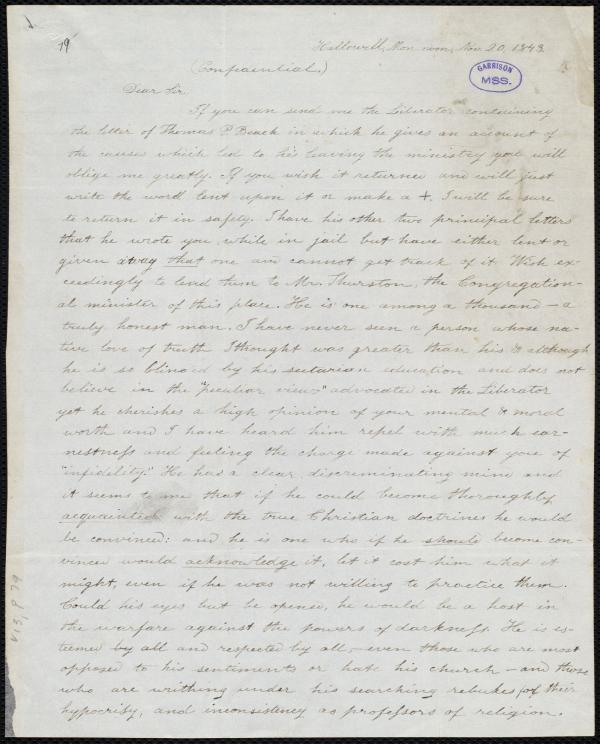 79
Hallowell, Mon morn, Nov. 20, 1843.
GARRISON
MSS.
(Confidential.)
Dear Sir
If you can send me the Liberator containing
the letter of Thomas P Beach in which he gives an account of
the causes which led to his leaving the ministry you will
oblige me greatly. If you wish it returned and will just
write the word lent upon it or make a +, I will be sure
to return it in safety. I have his other two principal letters
that he wrote you while in jail but have either lent or
given away that one and cannot get track of it. Wish ex-
ceedingly to lend them to Mr. Thurston, the Congregation-
al minister of this place. He is one among a thousand – a
truly honest man. I have never seen a person whose na-
tive love of truth I thought was greater than his & although
he is so blinded by his sectarian education and does not
believe in the "peculiar views" advocated in the Liberator
yet he cherishes a high opinion of your mental & moral
worth and I have heard him repel with much ear-
nestness and feeling the charge made against you of
"infidelity." He has a clear discriminating mind and
it seems to me that if he could become thoroughly
acquainted with the true Christian doctrines he would
be convinced: and he is one who if he should become con-
vinced would acknowledge it, let it cost him what it
might, even if he was not willing to practice them.
Could his eyes but be opened, he would be a host in
the warfare against the powers of darkness. He is es-
teemed by all and respected by all, – even those who are most
opposed to his sentiments or hate his church – and those
who are writhing under his searching rebukes of their
hypocrisy, and inconsistency as professors of religion.
v.13, p 79